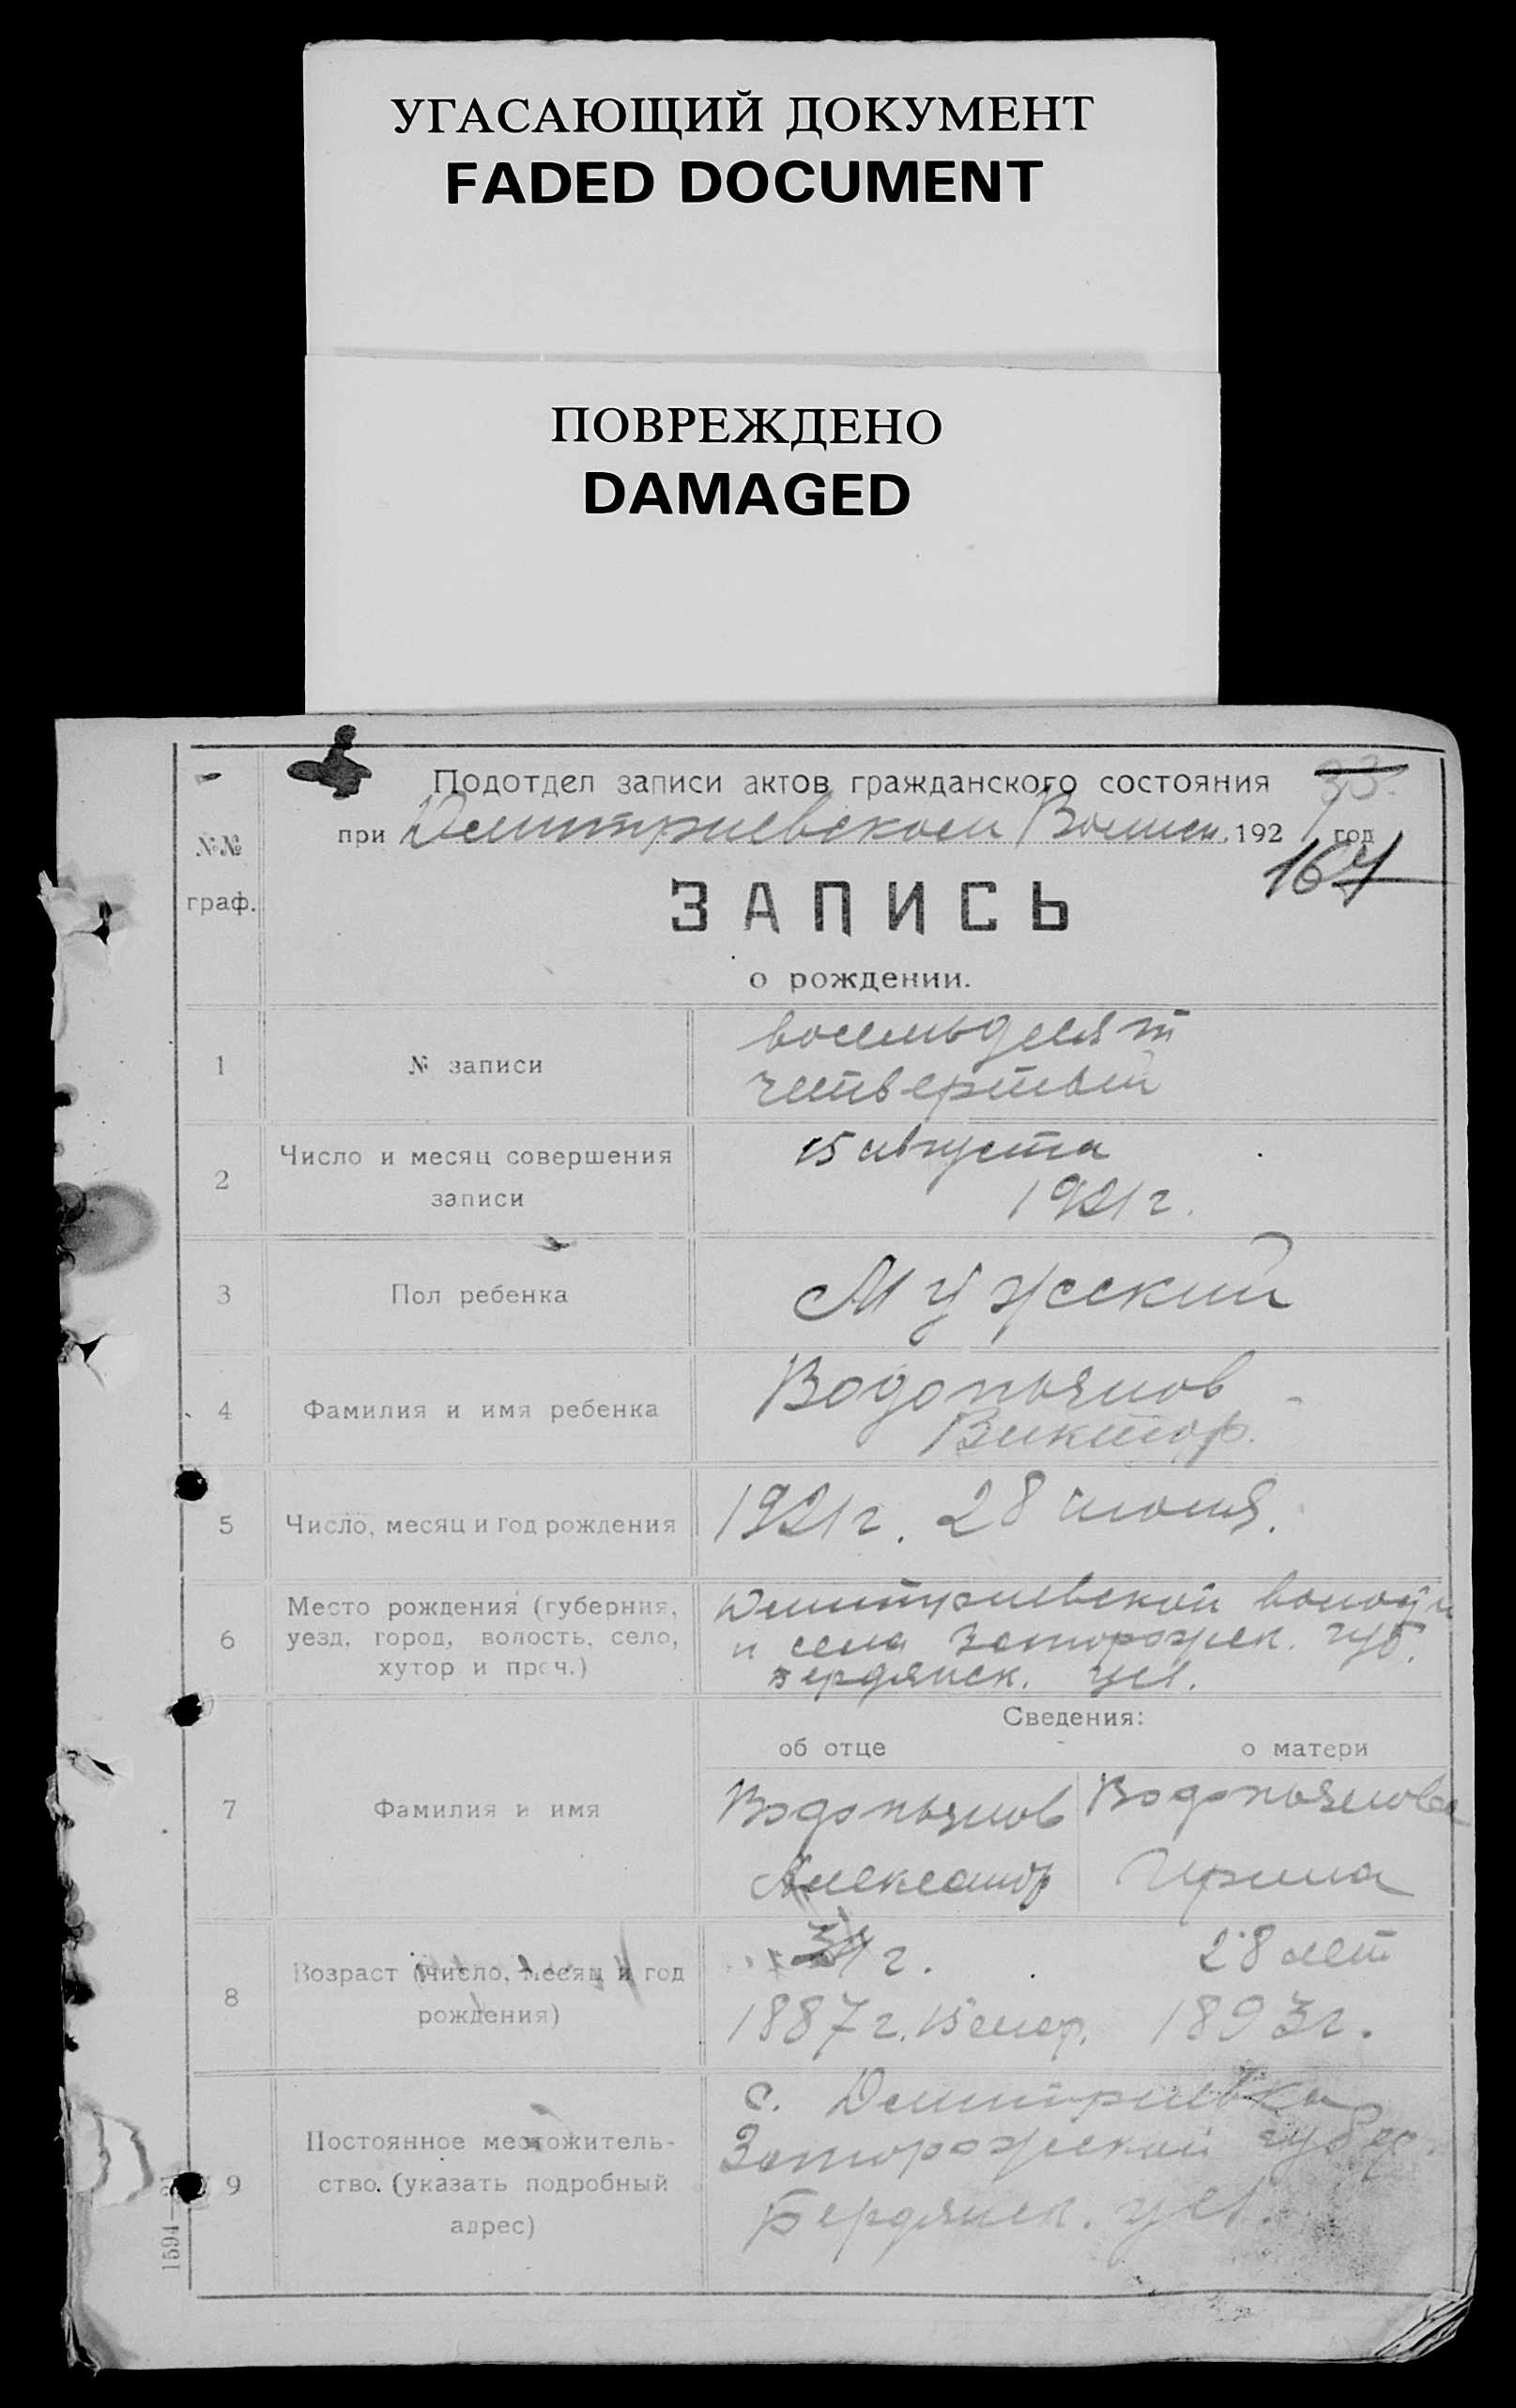 УГАСАЮЩИЙ ДОКУМЕНТ
FADED DOCUMENT
ПОВРЕЖДЕНО
DAMAGED
Подотдел записи актов гражданского состояния 33.
при Дмитриевском Волисп. 1921 год
164
№№
граф.
ЗАПИСЬ
о рождении.
1 № записи восемьдесят
четвертый
2 Число и месяц совершения записи 15 августа
1921 г.
3 Пол ребенка Мужский
4 Фамилия и имя ребенка Водопьянов
Виктор.
5 Число, месяц и год рождения 1921 г. 28 июня.
6 Место рождения (губерния, Дмитриевской
уезд, город, волость, село, и села Запорожск. губ.
хутор и проч.) Бердянск. уез.
Сведения:
об отце о матери
7 Фамилия и имя Водопьянов Водопьянова
Александр Ирина
8 Возраст (число, месяц и год 34 г. 28 лет
рождения) 1887 г. 1893 г.
9 с. Дмитриевка
Постоянное местожитель- Запорожской губер.
ство. (указать подробный
адрес) Бердянск. уез.
1594